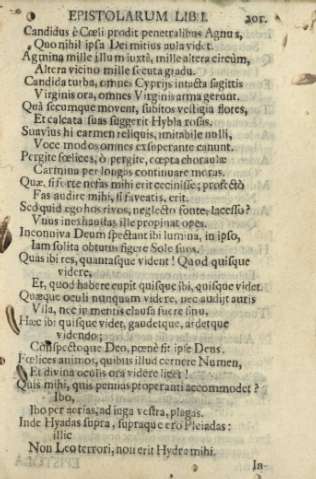 EPISTOLARUM LIB. I. 201.
Candidus è Cœli prodit penetralibus Agnus,
Quo nihil ipsa Dei mitius aula videt.
Agmina mille illum iuxtà, mille altera circùm,
Altera vicino mille secuta gradu.
Candida turba, omnes Cypriis intacta sagittis
Virginis ora, omnes Virginis arma gerunt.
Quà secumque movent, subitos vestigia flores,
Et calcata suas suggerit Hybla rosas.
Suaviùs hi carmen reliquis, imitabile nulli,
Voce modos omnes exsuperante canunt.
Pergite fœlices, ò pergite, cœpta choraulæ
Carmina per longas continuare moras.
Quæ, si forte nefas mihi erit cecinisse; profectò
Fas audire mihi, si faveatis, erit.
Sed quid ego hos rivos, neglecto fonte, lacesso?
Unus inexhaustas ille propinat opes.
Inconniva Deum spectant ibi lumina, in ipso,
Iam solita obtutus figere Sole suos.
Quas ibi res, quantasque vident! Quod quisque
videre,
Et, quod habere cupit quisque ibi, quisque videt.
Quæque oculi nunquam videre, nec audiit auris
Ulla, nec in mentis clausa fuere sinu,
Hæc ibi quisque videt, gaudetque, ardetque
videndo;
Conspectoque Deo, pœnè fit ipse Deus.
Fœlices animos, quibus illud cernere Numen,
Et divina oculis ora videre licet!
Quis mihi, quis pennas properanti accommodet?
Ibo,
Ibo per aerias, ad iuga vestra, plagas.
Inde Hyadas supra, supraque ero Pleiadas:
illic
Non Leo terrori, non erit Hydra mihi.
In-